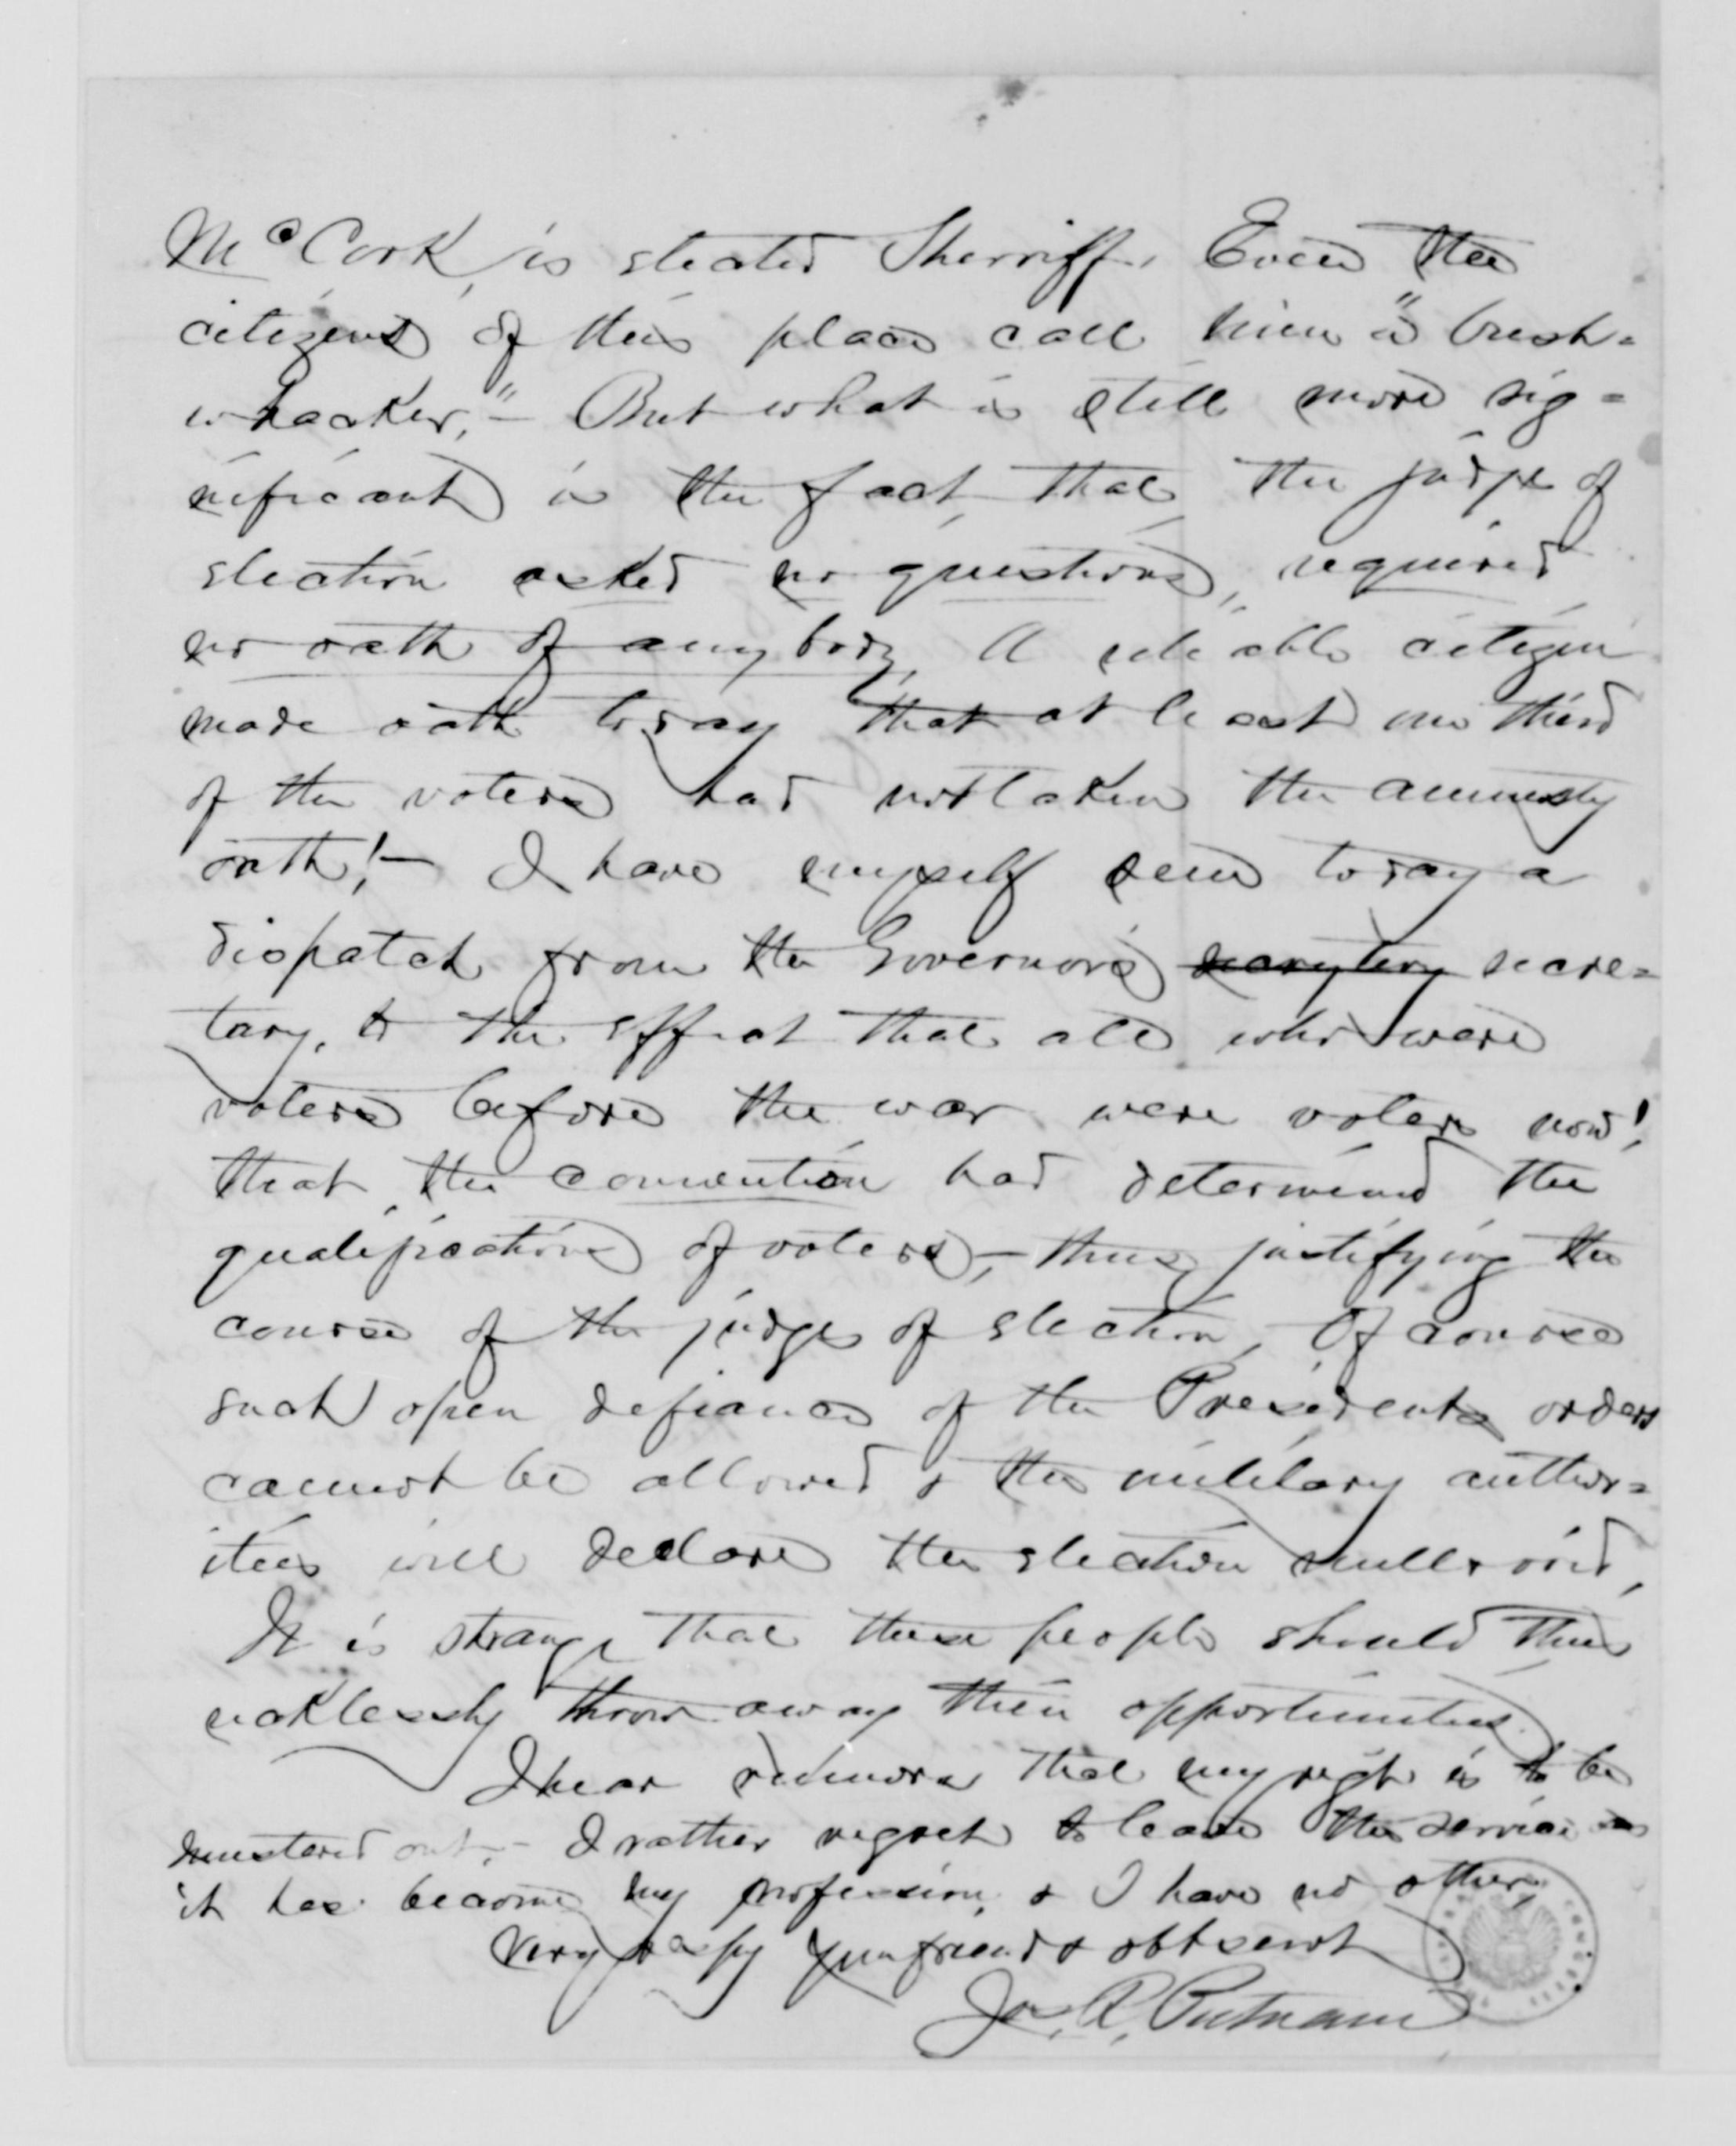 McCork is elected Sherriff. Even the
citizens of this place call him "a bush=
whacker," - But what is still more sig=
nificant is the fact that the judge of
election asked no questions, required
no oath of anybody. A reliable citizen
made oath today that at least one third
of the voters had not taken the amnesty
oath! - I have myself seen today a
dispatch from the Governor's secre=
tary, to the effect that all who were
voters before the war were voters now!
that the convention had determined the
qualifications of voters, - thus justifying the
course of the judge of election. Of course
such open defiance of the Presidents orders
cannot be allowed & the military author=
ities will declare the election null & void.
It is strange that these people should thus
recklessly throw away their opportunities.
I hear rumors that my regt is to be
mustered out. - I rather regret to leave the service as
it has become my profession, & I have no other.
Very respy your friend & obt servt
Jos. R. Putnam